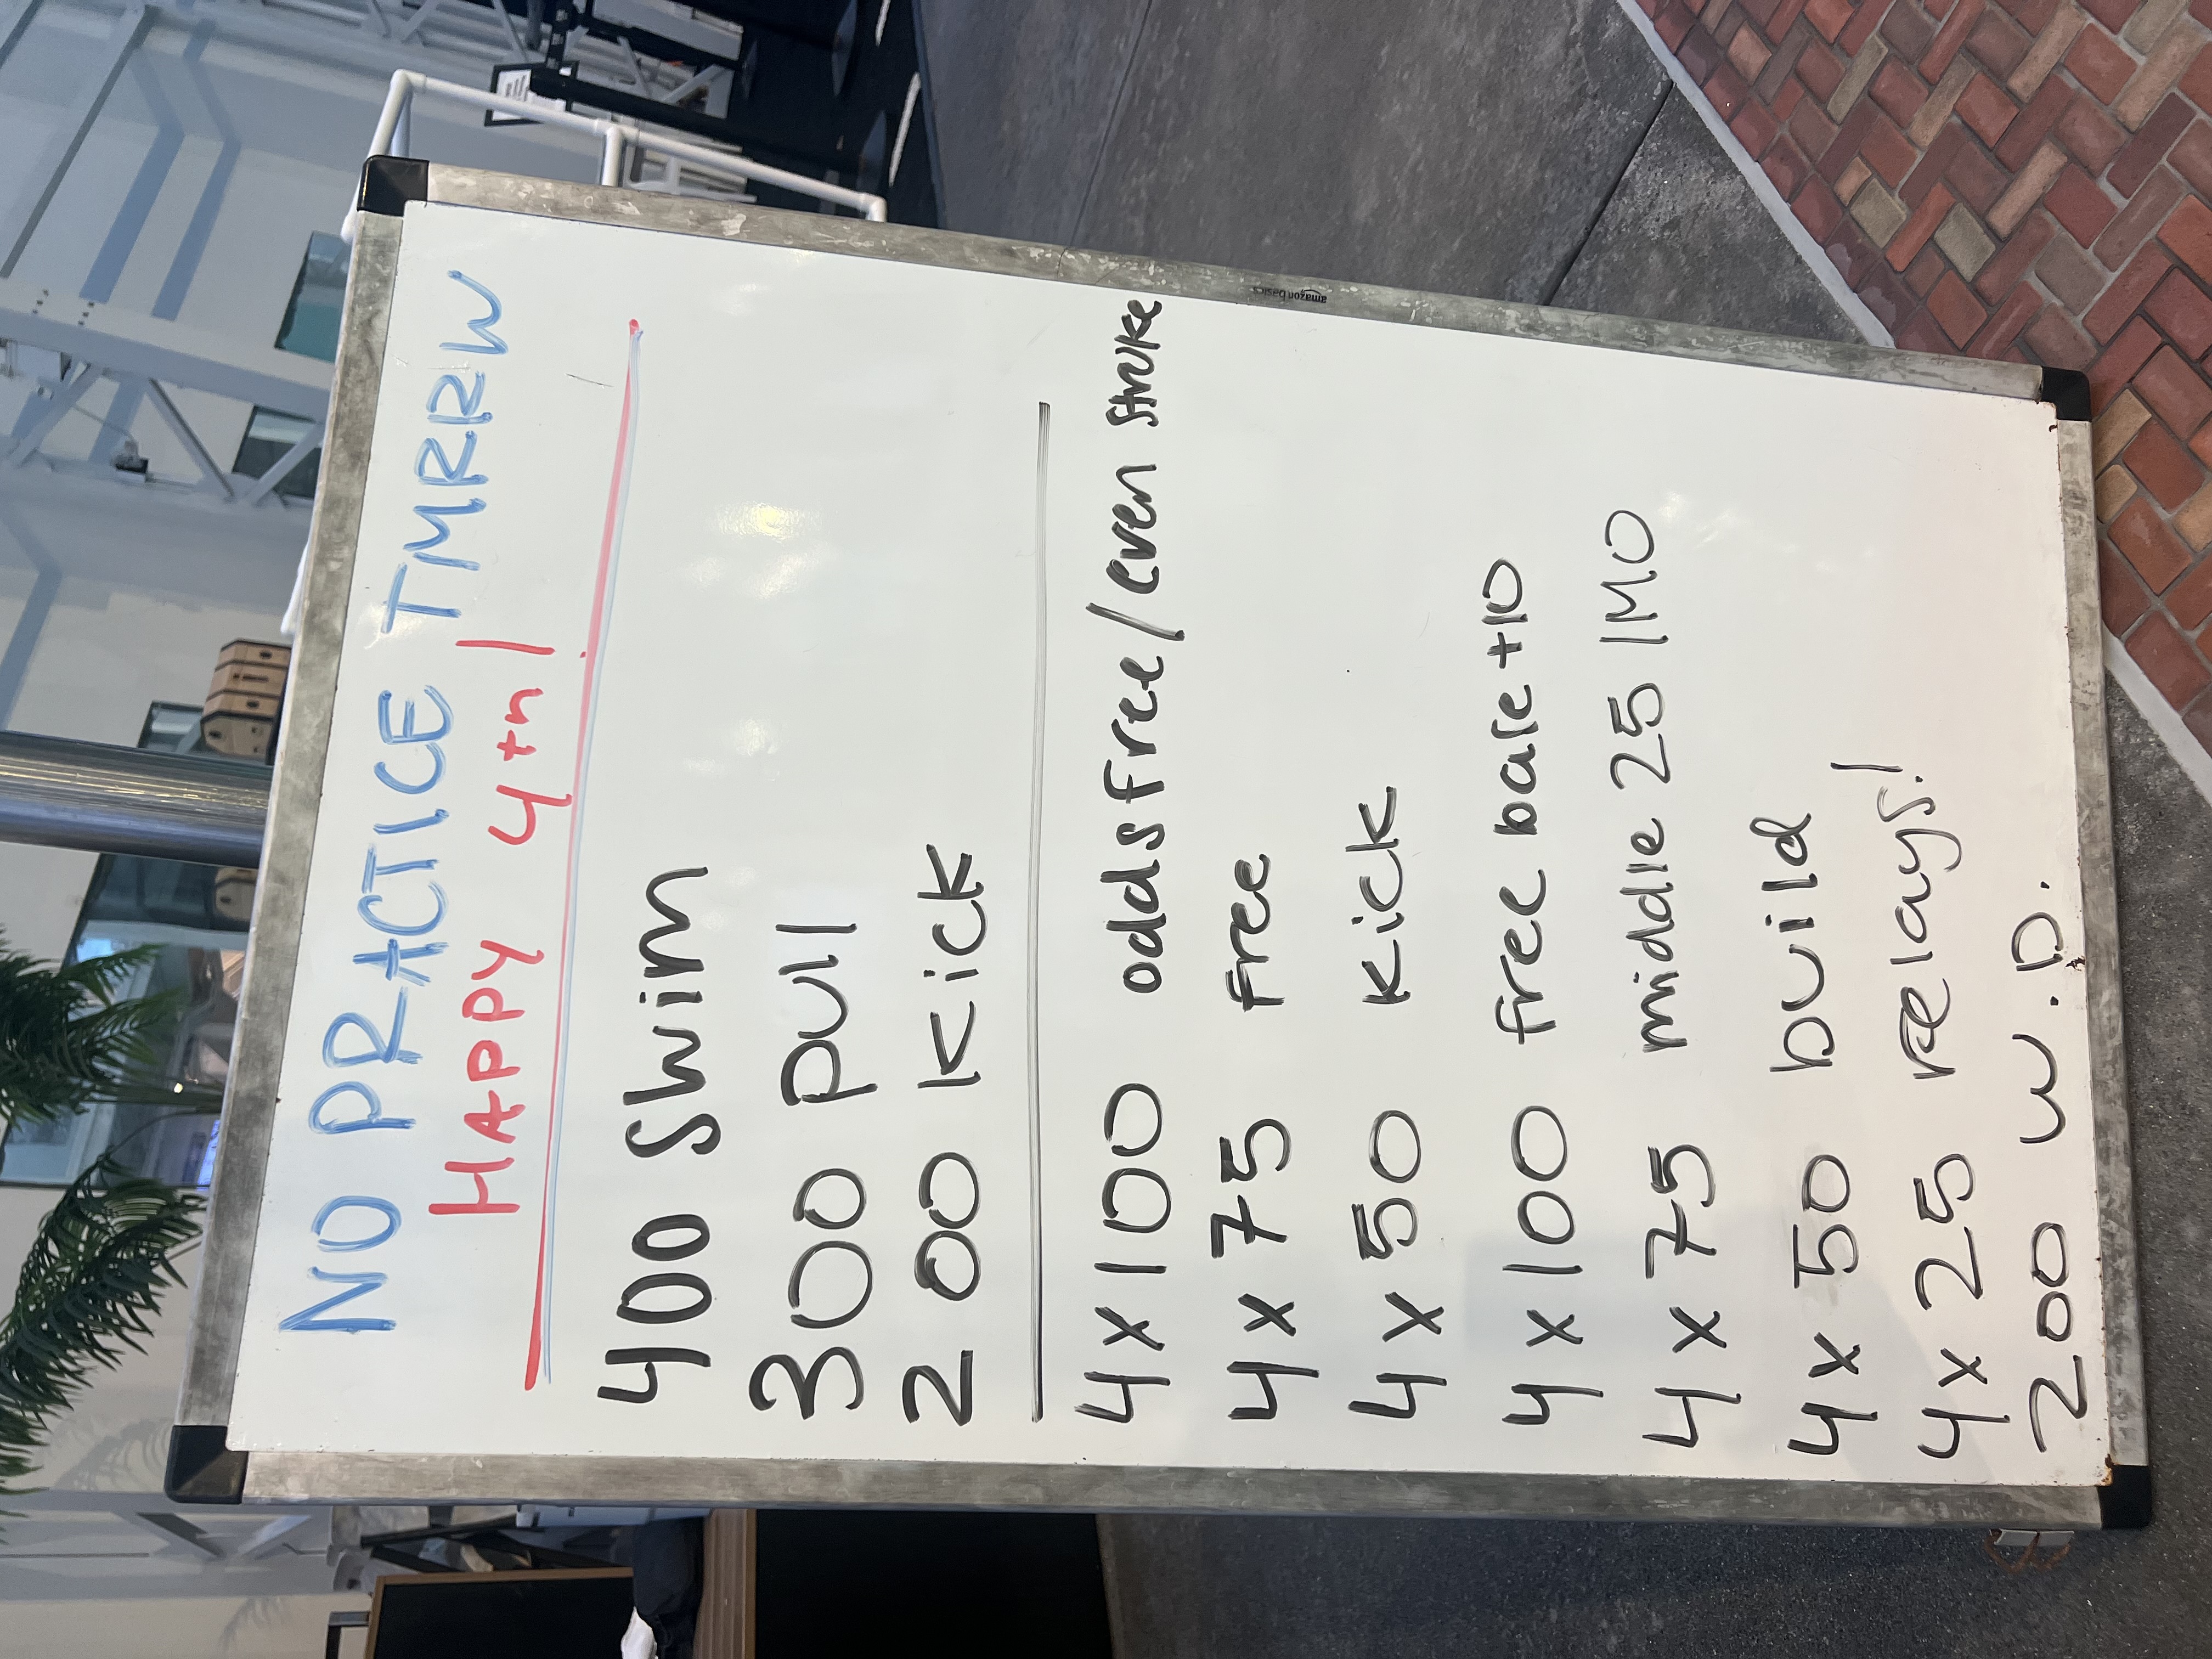 NO PRACTICE TMRRW
HAPPY 4th!
400 Swim
300 pull
200 Kick
4x100 odds free/even stroke
4 x 75 free
4 x 50 Kick
4 x 100 free base +10
4 x 75 middle 25 IMO
4 x 50 build
4 x 25 relays!
200 W.D.
amazon basics